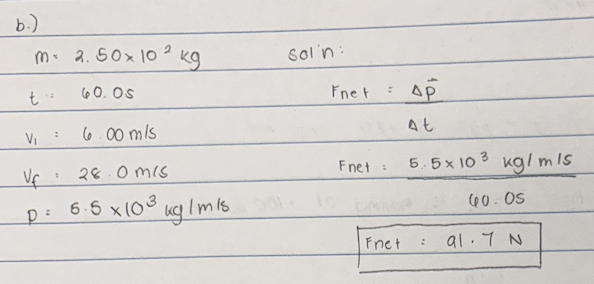 b.)
m: 2.50 x 10² kg
t: 60.0s
v₁ : 6.00 m/s
vf : 28.0 m/s
p: 5.5 x 10³ kg/m/s
Sol'n:
Fnet : Δp⃗
Δt
Fnet : 5.5 x 10³ kg/m/s
60.0s
Fnet : 91.7 N